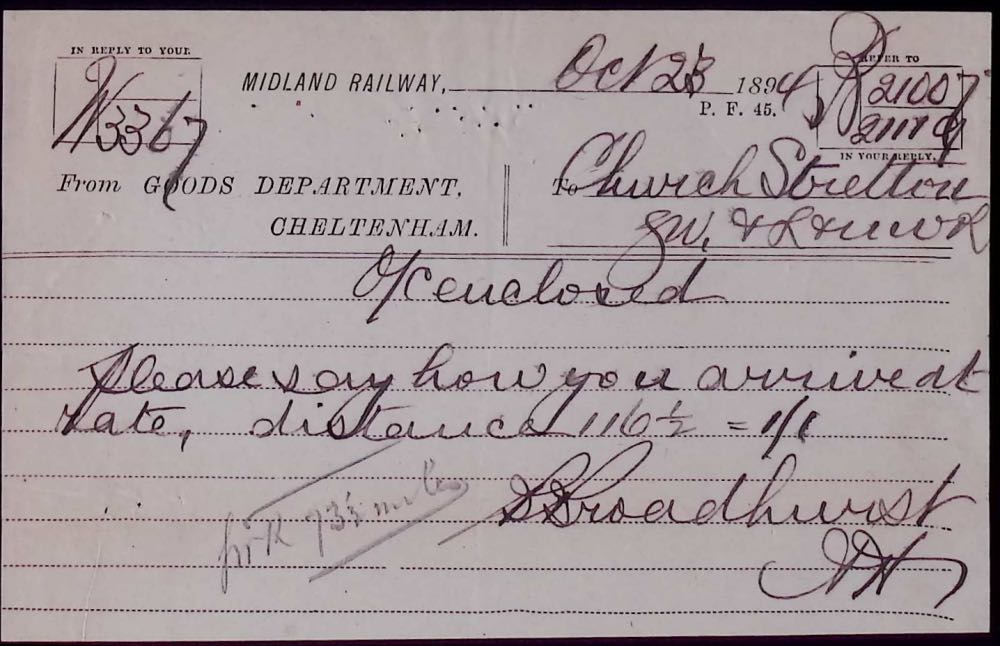 IN REPLY TO YOUR
W3367
MIDLAND RAILWAY, Oct 23 1894
P. F. 45.
REFER TO
21007
IN YOUR REPLY.
From GOODS DEPARTMENT,
CHELTENHAM.
To Church Stretton
GW. & L & NW R
O/C enclosed
Please say how you arrive at
rate, distance 116½ = 1/1
SBroadhurst
miles